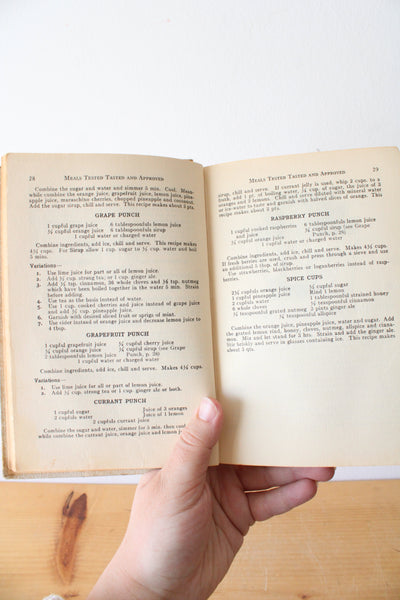 28 MEALS TESTED TASTED AND APPROVED
Combine the sugar and water and simmer 5 min. Cool. Mean-
while combine the orange juice, grapefruit juice, lemon juice, pine-
apple juice, maraschino cherries, chopped pineapple and coconut.
Add the sugar sirup, chill and serve. This recipe makes about 3 pts.
GRAPE PUNCH
1 cupful grape juice 6 tablespoonfuls lemon juice
cupful orange juice 6 tablespoonfuls sirup
1 cupful water or charged water
Combine ingredients, add ice, chill and serve. This recipe makes
cupfuls. For Sirup allow 1 cup. sugar to cup. water and boil
5 mins.
Variations—
1. Use lime juice for part or all of lemon juice.
2. Add cup. strong tea; or 1 cup. ginger ale.
3. Add tsp. cinnamon, 36 whole cloves and tsp. nutmeg
which have been boiled together in the water 5 min. Strain
before adding.
4. Use tea as the basis instead of water.
5. Use 1 cup. cherries and juice instead of grape juice
and add cup. pineapple juice.
6. Garnish with desired sliced fruit or sprigs of mint.
7. Use cider instead of orange juice and increase lemon juice
to 4 tbsp.
GRAPEFRUIT PUNCH
1 cupful grapefruit juice cupful cherry juice
cupful orange juice cupful sirup (see Grape
2 tablespoonfuls lemon juice Punch, p. 28)
1 cupful water or charged water
Combine ingredients, add ice, chill and serve. Makes cupfuls.
Variations—
1. Use lime juice for all or part of lemon juice.
2. Add cup. strong tea or 1 cup. ginger ale or both.
CURRANT PUNCH
1 cupful sugar Juice of 3 oranges
2 cupfuls water Juice of 1 lemon
2 cupfuls currant juice
Combine the sugar and water, simmer for 5 min. then cool
while combine the currant, orange juice and lemon juice
MEALS TESTED TASTED AND APPROVED 29
sirup, chill and serve. If currant jelly is used, whip 2 cups. to a
froth, add 1 pt. of boiling water, cup. of sugar, the juice of 3
oranges and 2 lemons. Chill and serve diluted with mineral water
or ice-water to taste and garnish with halved slices of orange. This
recipe makes about 2 pts.
RASPBERRY PUNCH
1 cupful cooked raspberries 6 tablespoonfuls lemon juice
and juice cupful sirup (see Grape
cupful orange juice Punch, p. 28)
1 cupful water or charged water
Combine ingredients, add ice, chill and serve. Makes cupfuls.
If fresh berries are used, crush and press through a sieve and use
an additional 1 tbsp. of sirup.
Use strawberries, blackberries or loganberries instead of rasp-
berries.
SPICE CUPS
cupfuls orange juice cupful sugar
1 cupful pineapple juice Rind 1 lemon
2 cupfuls water 1 tablespoonful strained honey
6 whole cloves teaspoonful cinnamon
teaspoonful grated nutmeg 3 cupfuls ginger ale
teaspoonful allspice
Combine the orange juice, pineapple juice, water and sugar. Add
the grated lemon rind, honey, cloves, nutmeg, allspice and cinna-
mon. Mix and let stand for 2 hrs. Strain and add the ginger ale.
Stir briskly and serve in glasses containing ice. This recipe makes
about 3 qts.